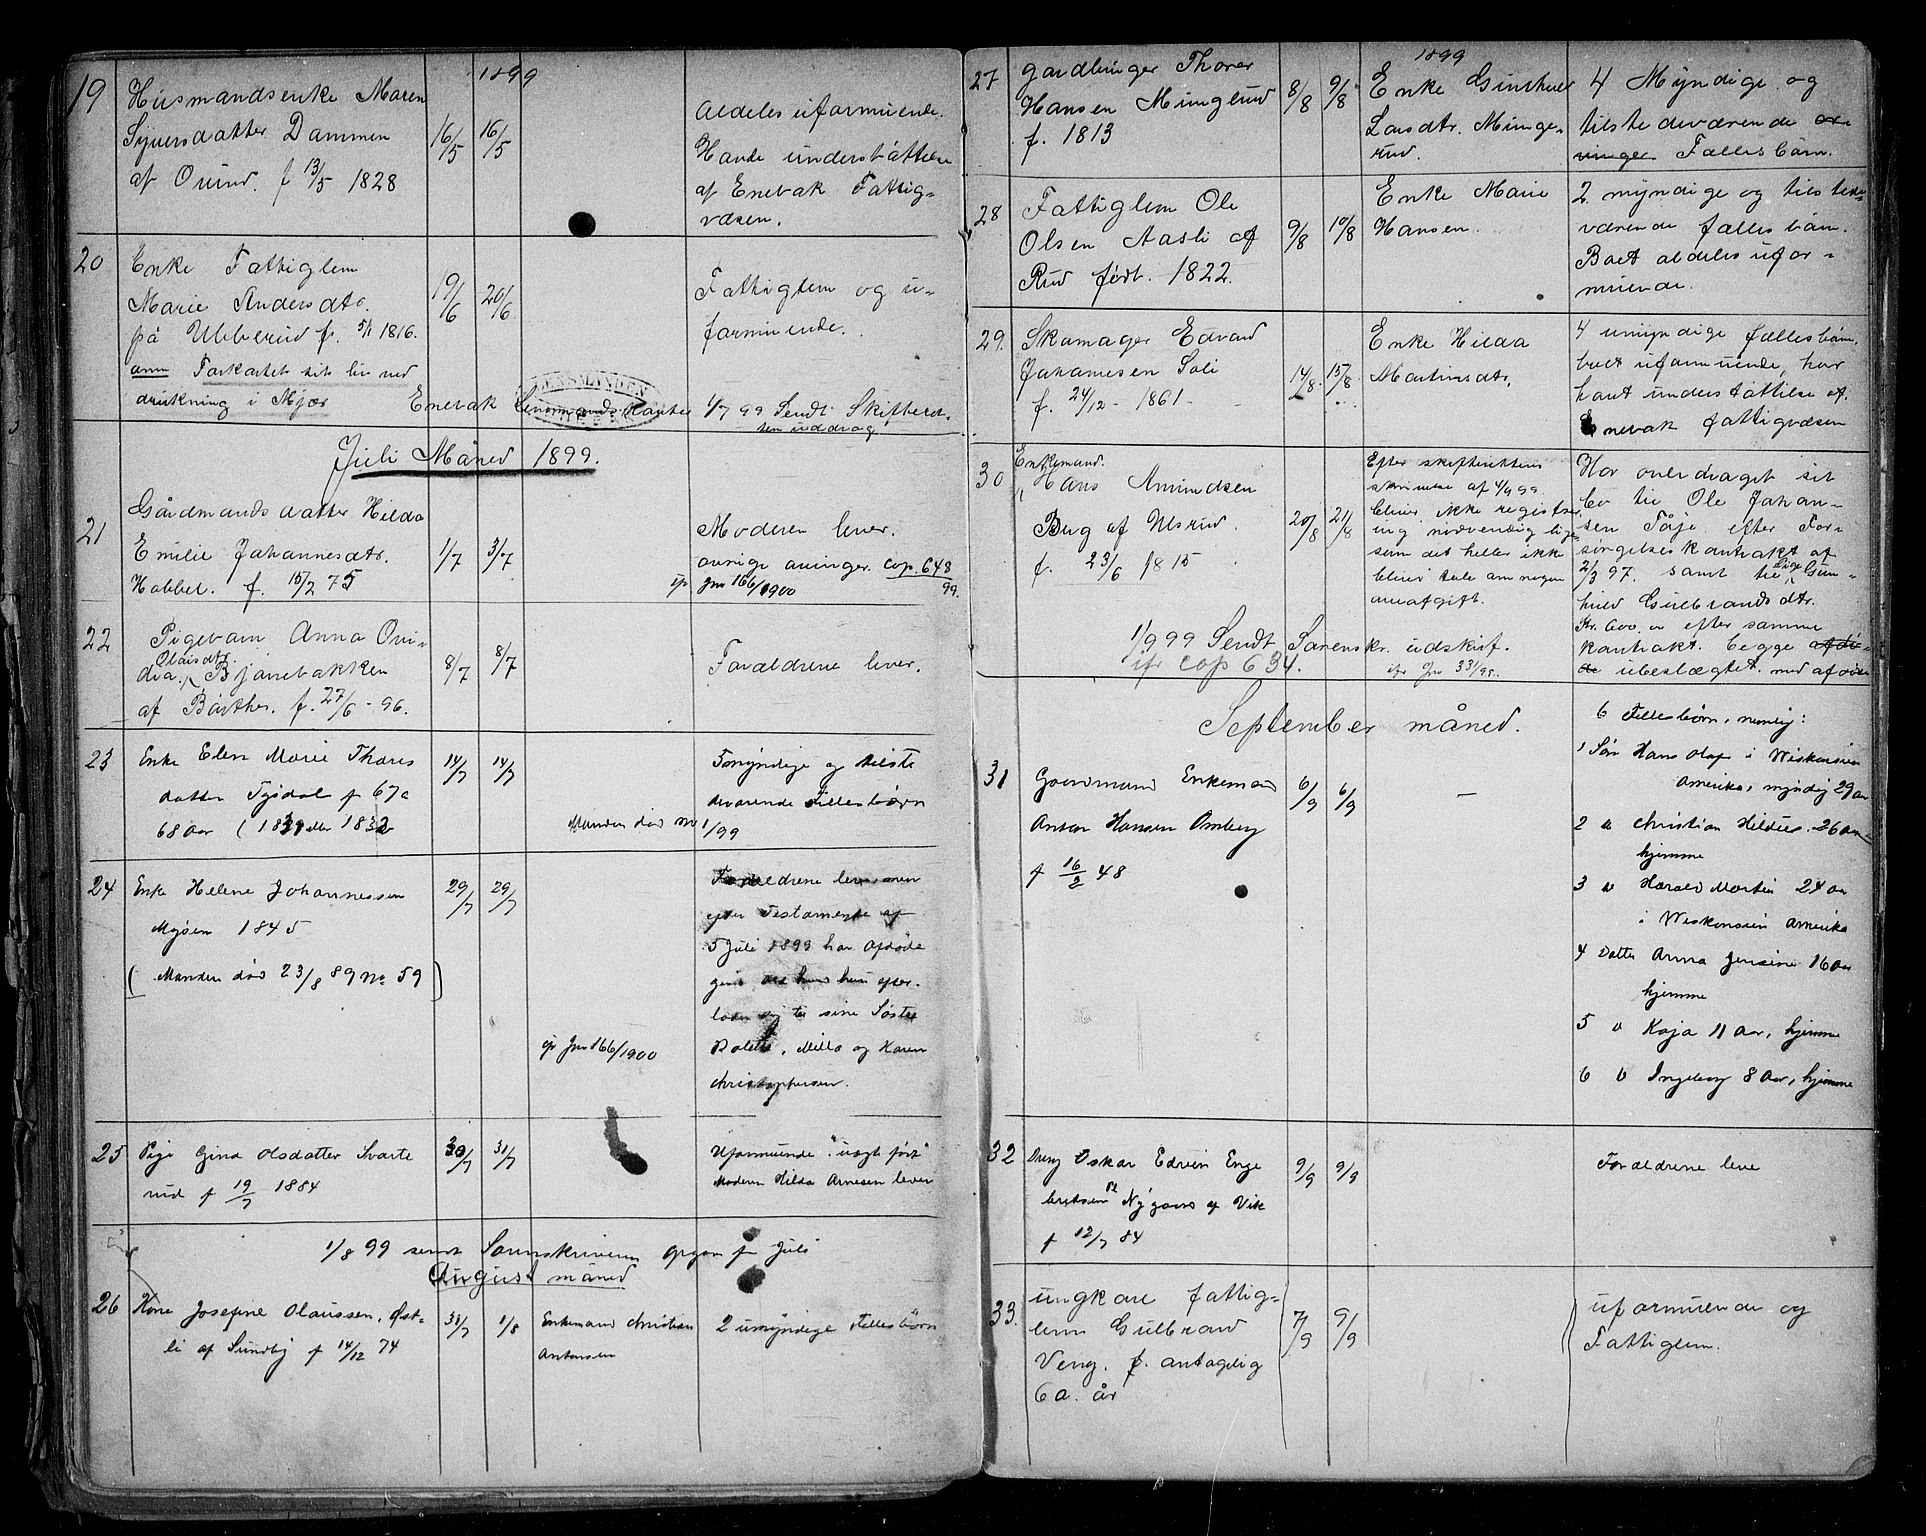 1899
19 Husmandsenke Maren
Syversdatter Dammen
af Ourud. f 13/5 1828
16/5 16/5
Aldeles uformuende.
Havde understöttelse
af Enebak Fattig-
væsen.
20 Enke Fattiglem
Marie Andersdtr.
på Ubberud f. 5/1 1816.
anm Forkortet sit liv ved
drukning i Mjær
19/6 20/6
Fattiglem og u-
formuende.
Enebak Lensmandskontor 1/7 99 Sendt Skifteret-
ten uddrag
Juli Måned 1899.
21 Gårdmandsdatter Hilda
Emilie Johannesdtr.
Hobbel. f. 15/2 75
1/7 3/7
Moderen lever.
övrige arvinger. cop. 648
99
Jnr 166/1900
22 Pigebarn Anna Ovi-
dia Olaisdtr. Bjönebakken
af Börther f. 27/6 - 96.
8/7 8/7
Forældrene lever.
23 Enke Elen Marie Thores
datter Tysdal f 67 a
68 Aar (1831 eller 1832
14/7 14/7
Manden död 1/99
myndige og tilste
deværende Fællesbörn
24 Enke Helene Johannessen
Mysen 1845
(Manden död 23/8 89 No 59)
29/7 29/7
Jnr 166/1900
Forældrene leve, men
efter Testamente af
5 Juli 1899 har Afdöde
hun efter-
lader sig til sine Söstre
Milla og Karen
Christophersen.
25 Pige Gina Olsdatter Svarte
rud f 19/7 1884
30/7 31/7
Uformuende "uægte föd"
Moderen Hilda Arnesen lever
1/8 99 sendt Sorenskriveren Opgave for Juli
August måned
26 Kone Josefine Olaussen, Öst-
li af Sundby f 14/12 74
31/7 1/8
Enkemand Christian
Antonsen
2 umyndige Fællesbörn
1899
27 gardbruger Thorer
Hansen Mungerud
f. 1813
8/8 9/8
Enke Gunhild
Larsdtr. Munge-
rud.
4 Myndige og
tilstedeværende ar-
vinger Fællesbörn.
28 Fattiglem Ole
Olsen Aasli af
Rud født. 1822.
9/8 10/8
Enke Marie
Hansen.
2 myndige og tilstede-
værende fællesbörn.
Boet aldeles ufor-
muende.
29. Skomager Edvard
Johannesen Soli
f. 24/12 - 1861 -
14/8. 15/8
Enke Hilda
Martinsdtr.
4 umyndige fællesbörn.
boet uformuende, har
havt understöttelse af
Enebak fattigvæsen
30 Enkemand.
Hans Amundsen
Bug af Ulsrud.
f. 23/6 1815
20/8 21/8
Efter skifterettens
skrivelse af 4/9 99
bliver ikke registrer
ing nödvendig lige
som det heller ikke
bliver tale om nogen
arveafgift.
Har overdraget sit
bo til Ole Johan-
sen Töje efter For-
sörgelseskontrakt af
2/3 97. samt til Pige Gun-
hild Gulbrandsdtr.
Kr. 600.00 efter samme
kontrakt. begge afdö-
de ubeslægtet med afdöde
1/9 99 Sendt Sorenskr. udskrift.
ifr cop 634.
ifr Jnr 331/95.
September måned.
31 Gaardmand Enkemand
Anton Hansen Omberg
f 16/2 48
6/9 6/9
—
6 Fællesbörn, nemlig:
1 Sön Hans Olaf i Wiskonsin
Amerika, myndig 29 aar
2 " Christian Hilds. 26 aar
hjemme
3 " Harald Martin 24 aar
i Wiskonsin Amerika
4 Datter Anna Jensine 16 Aar
hjemme
5 " Kaja 11 Aar, hjemme
6 " Ingeborg 8 Aar, hjemme
32 Dreng Oskar Edvin Enge
bretsen Nygaard af Vik
f 12/7 84
9/9 9/9
Forældrene leve
33. ungkare fattig-
lem Gulbrand
Veng. f. antagelig
60. år
7/9 9/9
uformuende og
Fattiglem.